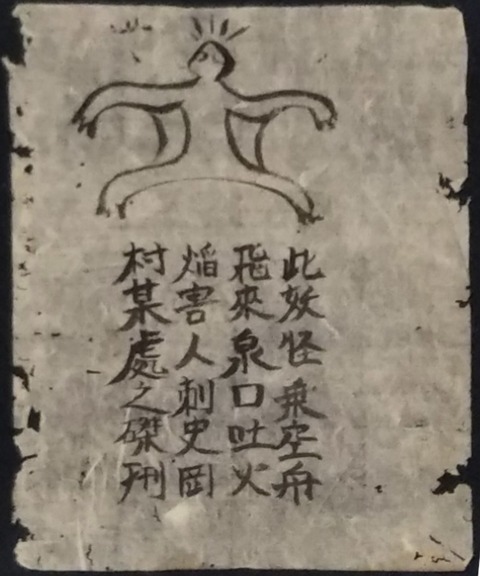 此妖怪乗空舟
飛來泉口吐火
焔害人刺史岡
村某處之磔刑